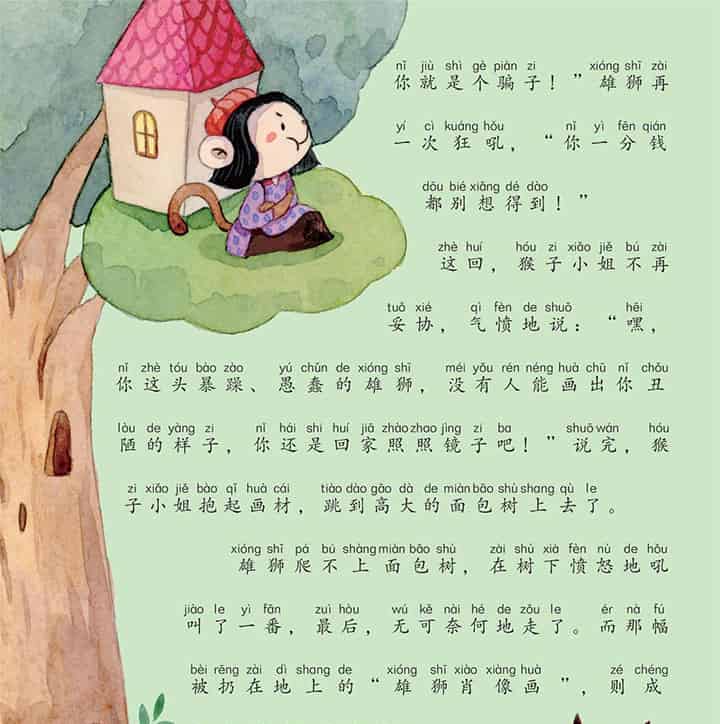 nǐ jiù shì gè piàn zi xióng shī zài
你就是个骗子！”雄狮再
yí cì kuáng hǒu nǐ yì fēn qián
一次狂吼，“你一分钱
dōu bié xiǎng dé dào
都别想得到！”
zhè huí hóu zi xiǎo jiě bú zài
这回，猴子小姐不再
tuǒ xié qì fèn de shuō hēi
妥协，气愤地说：“嘿，
nǐ zhè tóu bào zào yú chǔn de xióng shī méi yǒu rén néng huà chū nǐ chǒu
你这头暴躁、愚蠢的雄狮，没有人能画出你丑
lòu de yàng zi nǐ hái shi huí jiā zhào zhao jìng zi ba shuō wán hóu
陋的样子，你还是回家照照镜子吧！”说完，猴
zi xiǎo jiě bào qǐ huà cái tiào dào gāo dà de miàn bāo shù shang qù le
子小姐抱起画材，跳到高大的面包树上去了。
xióng shī pá bú shàng miàn bāo shù zài shù xià fèn nù de hǒu
雄狮爬不上面包树，在树下愤怒地吼
jiào le yì fān zuì hòu wú kě nài hé de zǒu le ér nà fú
叫了一番，最后，无可奈何地走了。而那幅
bèi rēng zài dì shang de xióng shī xiào xiàng huà zé chéng
被扔在地上的“雄狮肖像画”，则成